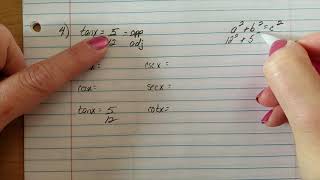 4) tan x = 5 = opp
12 adj
a² + b² = c²
12² + 5
csc x =
cos x =
sec x =
tan x = 5
12
cot x =